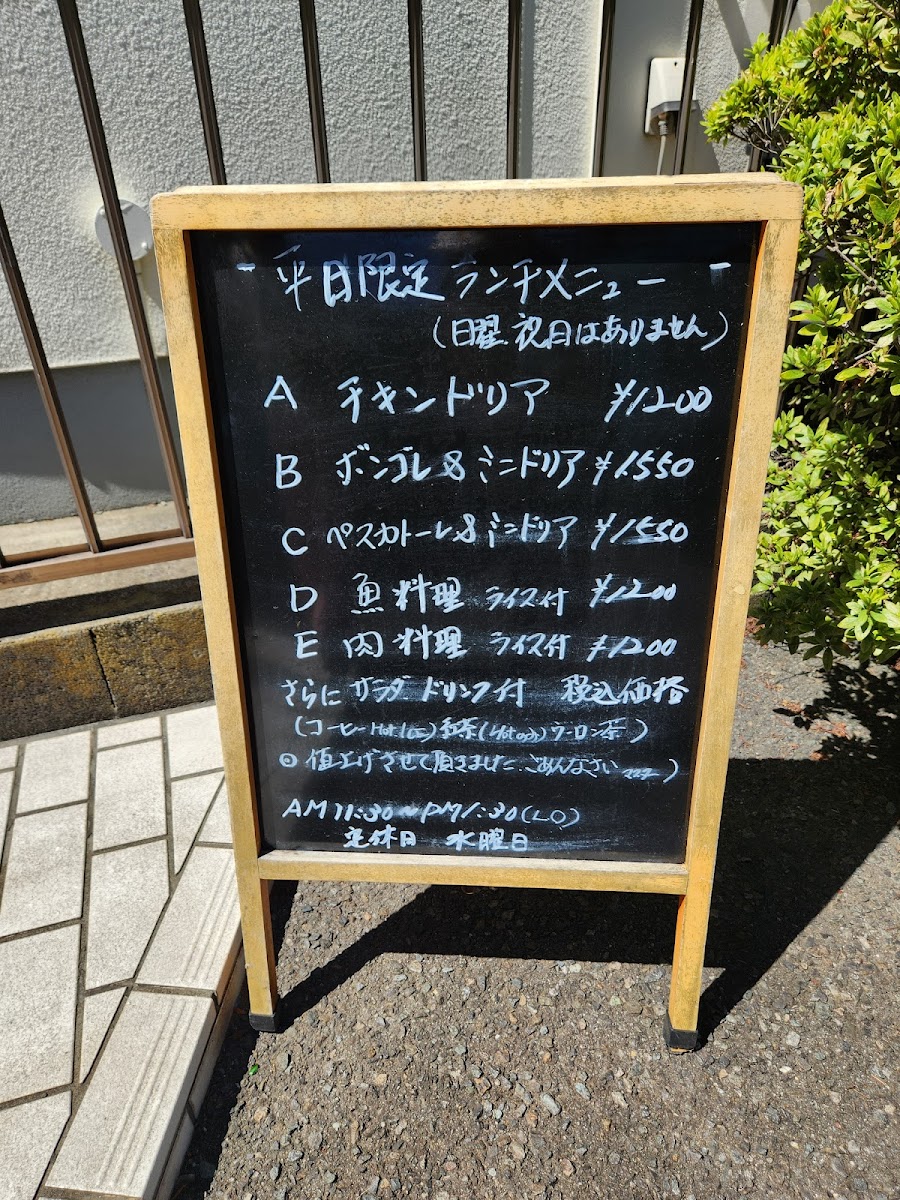 - 平日限定 ランチメニュー -
(日曜 祝日はありません)
A チキンドリア ¥1200
B ボンゴレ & ミニドリア ¥1550
C ペスカトーレ & ミニドリア ¥1550
D 魚料理 ライス付 ¥1200
E 肉料理 ライス付 ¥1200
さらに サラダ ドリンク付 税込価格
(コーヒー Hot Ice) 紅茶 ウーロン茶)
◎ 値上げさせて頂きました.ごめんなさい
AM 11:30 ~ PM 1:30 (L.O)
定休日 水曜日